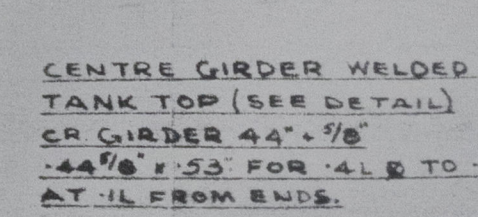 CENTRE GIRDER WELDED
TANK TOP (SEE DETAIL)
CR. GIRDER 44" + 5/8"
·44 5/8" x ·53" FOR ·4L TO
AT ·1L FROM ENDS.